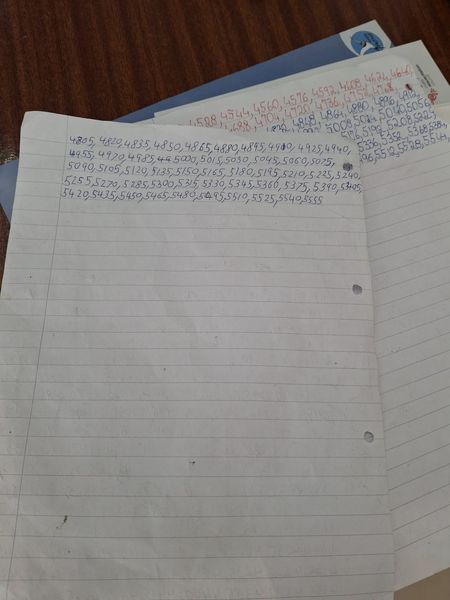 4544, 4560, 4576, 4592, 4608, 4624, 4640,
4688, 4704, 4720, 4736, 4752, 4768
4848, 4864, 4880, 4896, 4912,
5008, 5024, 5040, 5056
5192, 5208, 5223
5352, 5368, 5384,
5512, 5528, 5544,
4805, 4820, 4835, 4850, 4865, 4880, 4895, 4910, 4925, 4940,
4955, 4970, 4985, 5000, 5015, 5030, 5045, 5060, 5075,
5090, 5105, 5120, 5135, 5150, 5165, 5180, 5195, 5210, 5225, 5240,
5255, 5270, 5285, 5300, 5315, 5330, 5345, 5360, 5375, 5390, 5405,
5420, 5435, 5450, 5465, 5480, 5495, 5510, 5525, 5540, 5555